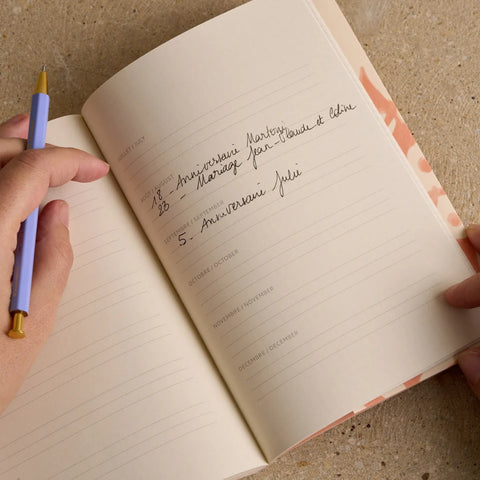 JUILLET / JULY
AOÛT / AUGUST
18 - Anniversaire
23 - Mariage Jean-Claude et Céline
SEPTEMBRE / SEPTEMBER
5. Anniversaire Julie
OCTOBRE / OCTOBER
NOVEMBRE / NOVEMBER
DECEMBRE / DECEMBER